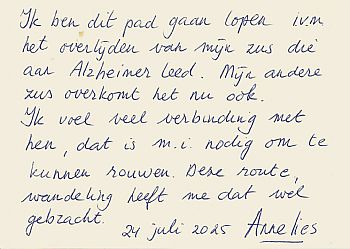 Ik ben dit pad gaan lopen ivm
het overlijden van mijn zus die
aan Alzheimer leed. Mijn andere
zus overkomt het nu ook.
Ik voel veel verbinding met
hen, dat is m.i. nodig om te
kunnen rouwen. Deze route,
wandeling heeft me dat wel
gebracht.
24 juli 2025 Annelies